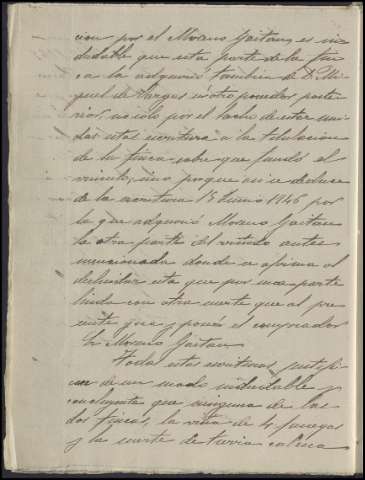 cion por el Moreno Gaitan, es in
dudable que esta parte de la fin
ca la adquirió tambien de D. Mi
guel de Vargas u otro poseedor poste
rior, no solo por el hecho de estar uni
das estas escritura a la titulacion
de la finca sobre que fundó el
vínculo, sino porque asi se deduce
de la escritura 15 Junio 1846 por
la que adquirió Moreno Gaitan
la otra parte del vínculo antes
mencionada donde se afirma al
deslindar esta que por una parte
linda con otra suerte que al pre
sente goza y poseé el comprador
Sr. Moreno Gaitan
Todas estas escrituras justifi
can de un modo indudable y
concluyente que ninguna de las
dos fincas, la viña de 4 fanegas
y la suerte de tierra calma